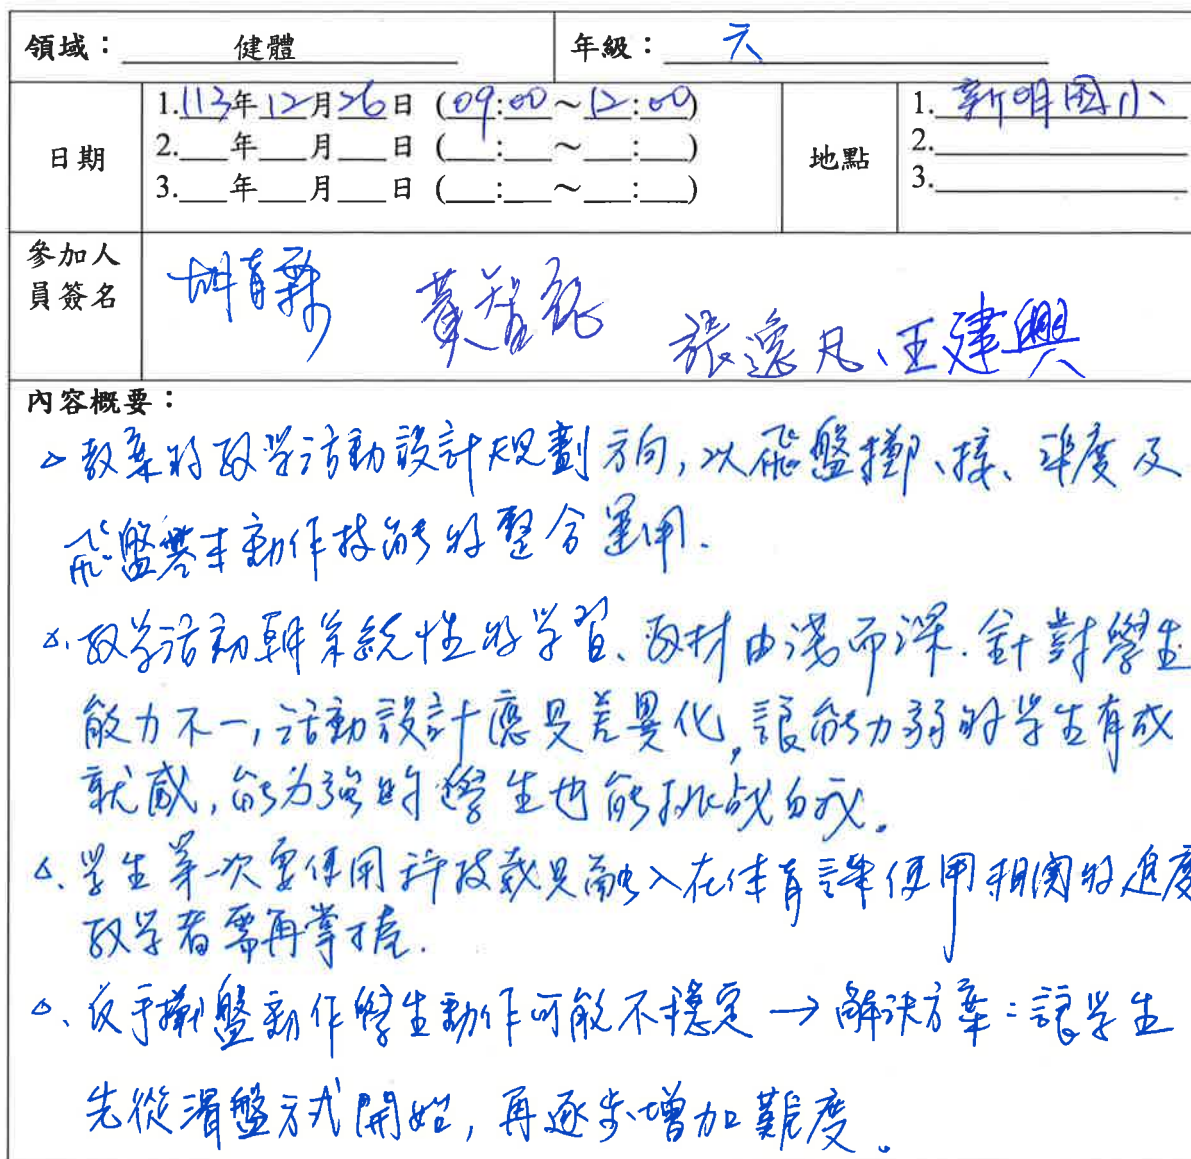 領域： 健體 年級： 六
日期 1.113年12月26日 (09:00~12:00) 地點 1. 新明國小
2.___年___月___日 (___:___~___:___) 2.
3.___年___月___日 (___:___~___:___) 3.
參加人員簽名
胡育 張逸凡、王建興
內容概要：
△教案的教学活動設計規劃方向,以飛盤擲、接、準度及
飛盤基本動作技能的整合運用.
△.教学活動朝系統性的学習、教材由淺而深.針對學生
能力不一,活動設計應具差異化,讓能力弱的学生有成
就感,能力強的學生也能挑战自我。
△.学生第一次要使用科技載具融入在体育課使用相関的進度
教学者需再掌握.
△、反手擲盤動作學生動作可能不穩定→解決方案:讓学生
先從滑盤方式開始,再逐步增加難度。